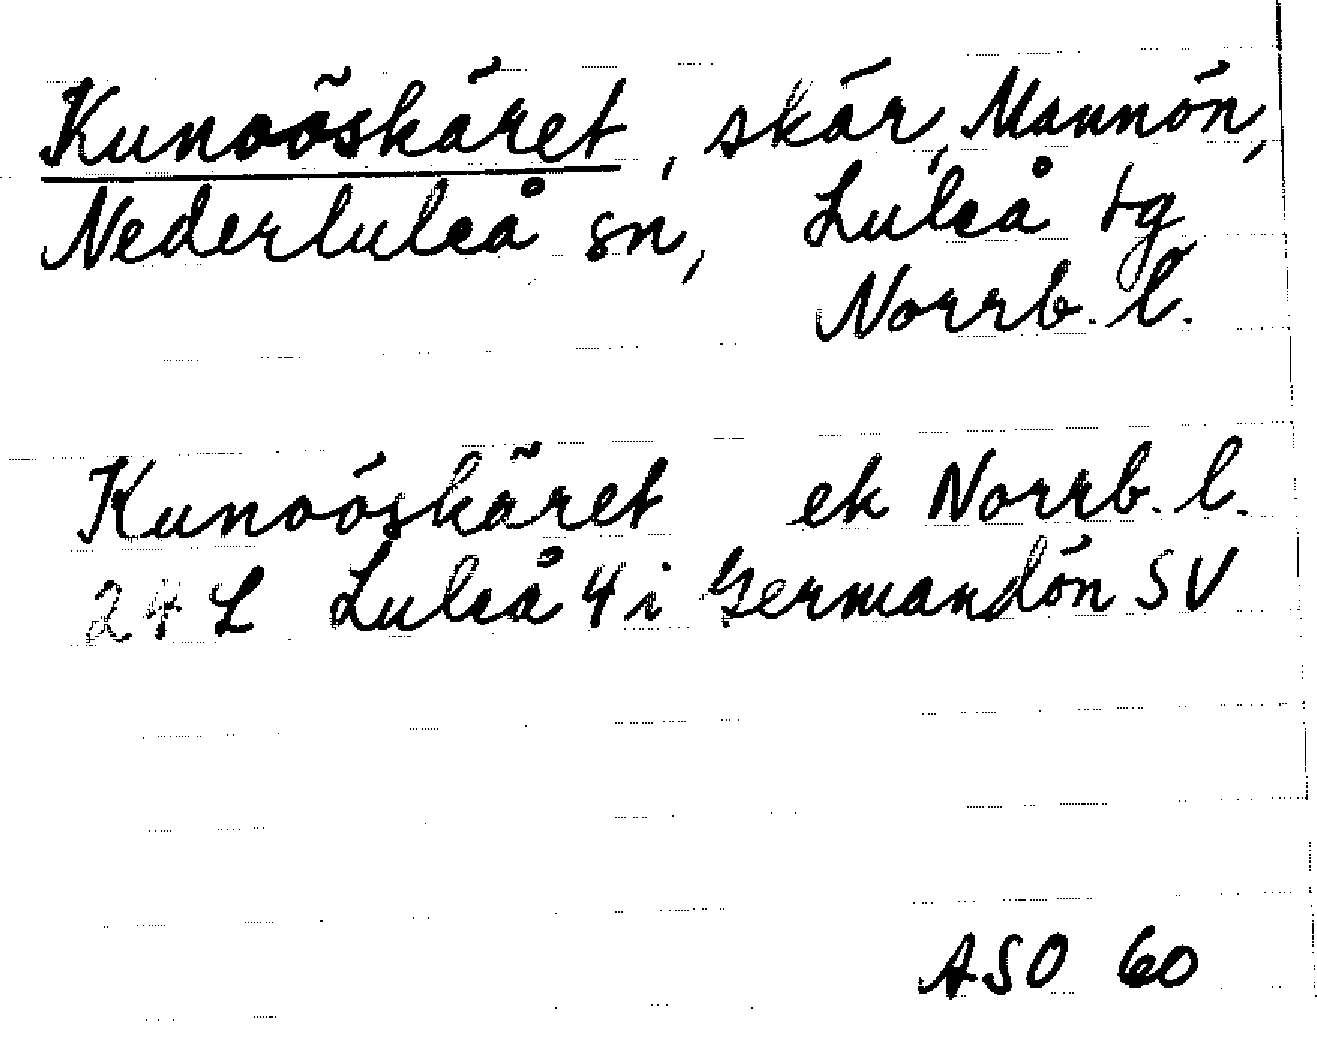 Kunoöskäret, skär, Mannön,
Nederluleå sn, Luleå tg
Norrb. l.
Kunoöskäret ek Norrb. l.
24 L Luleå 4 i Germandön SV
ASO 60